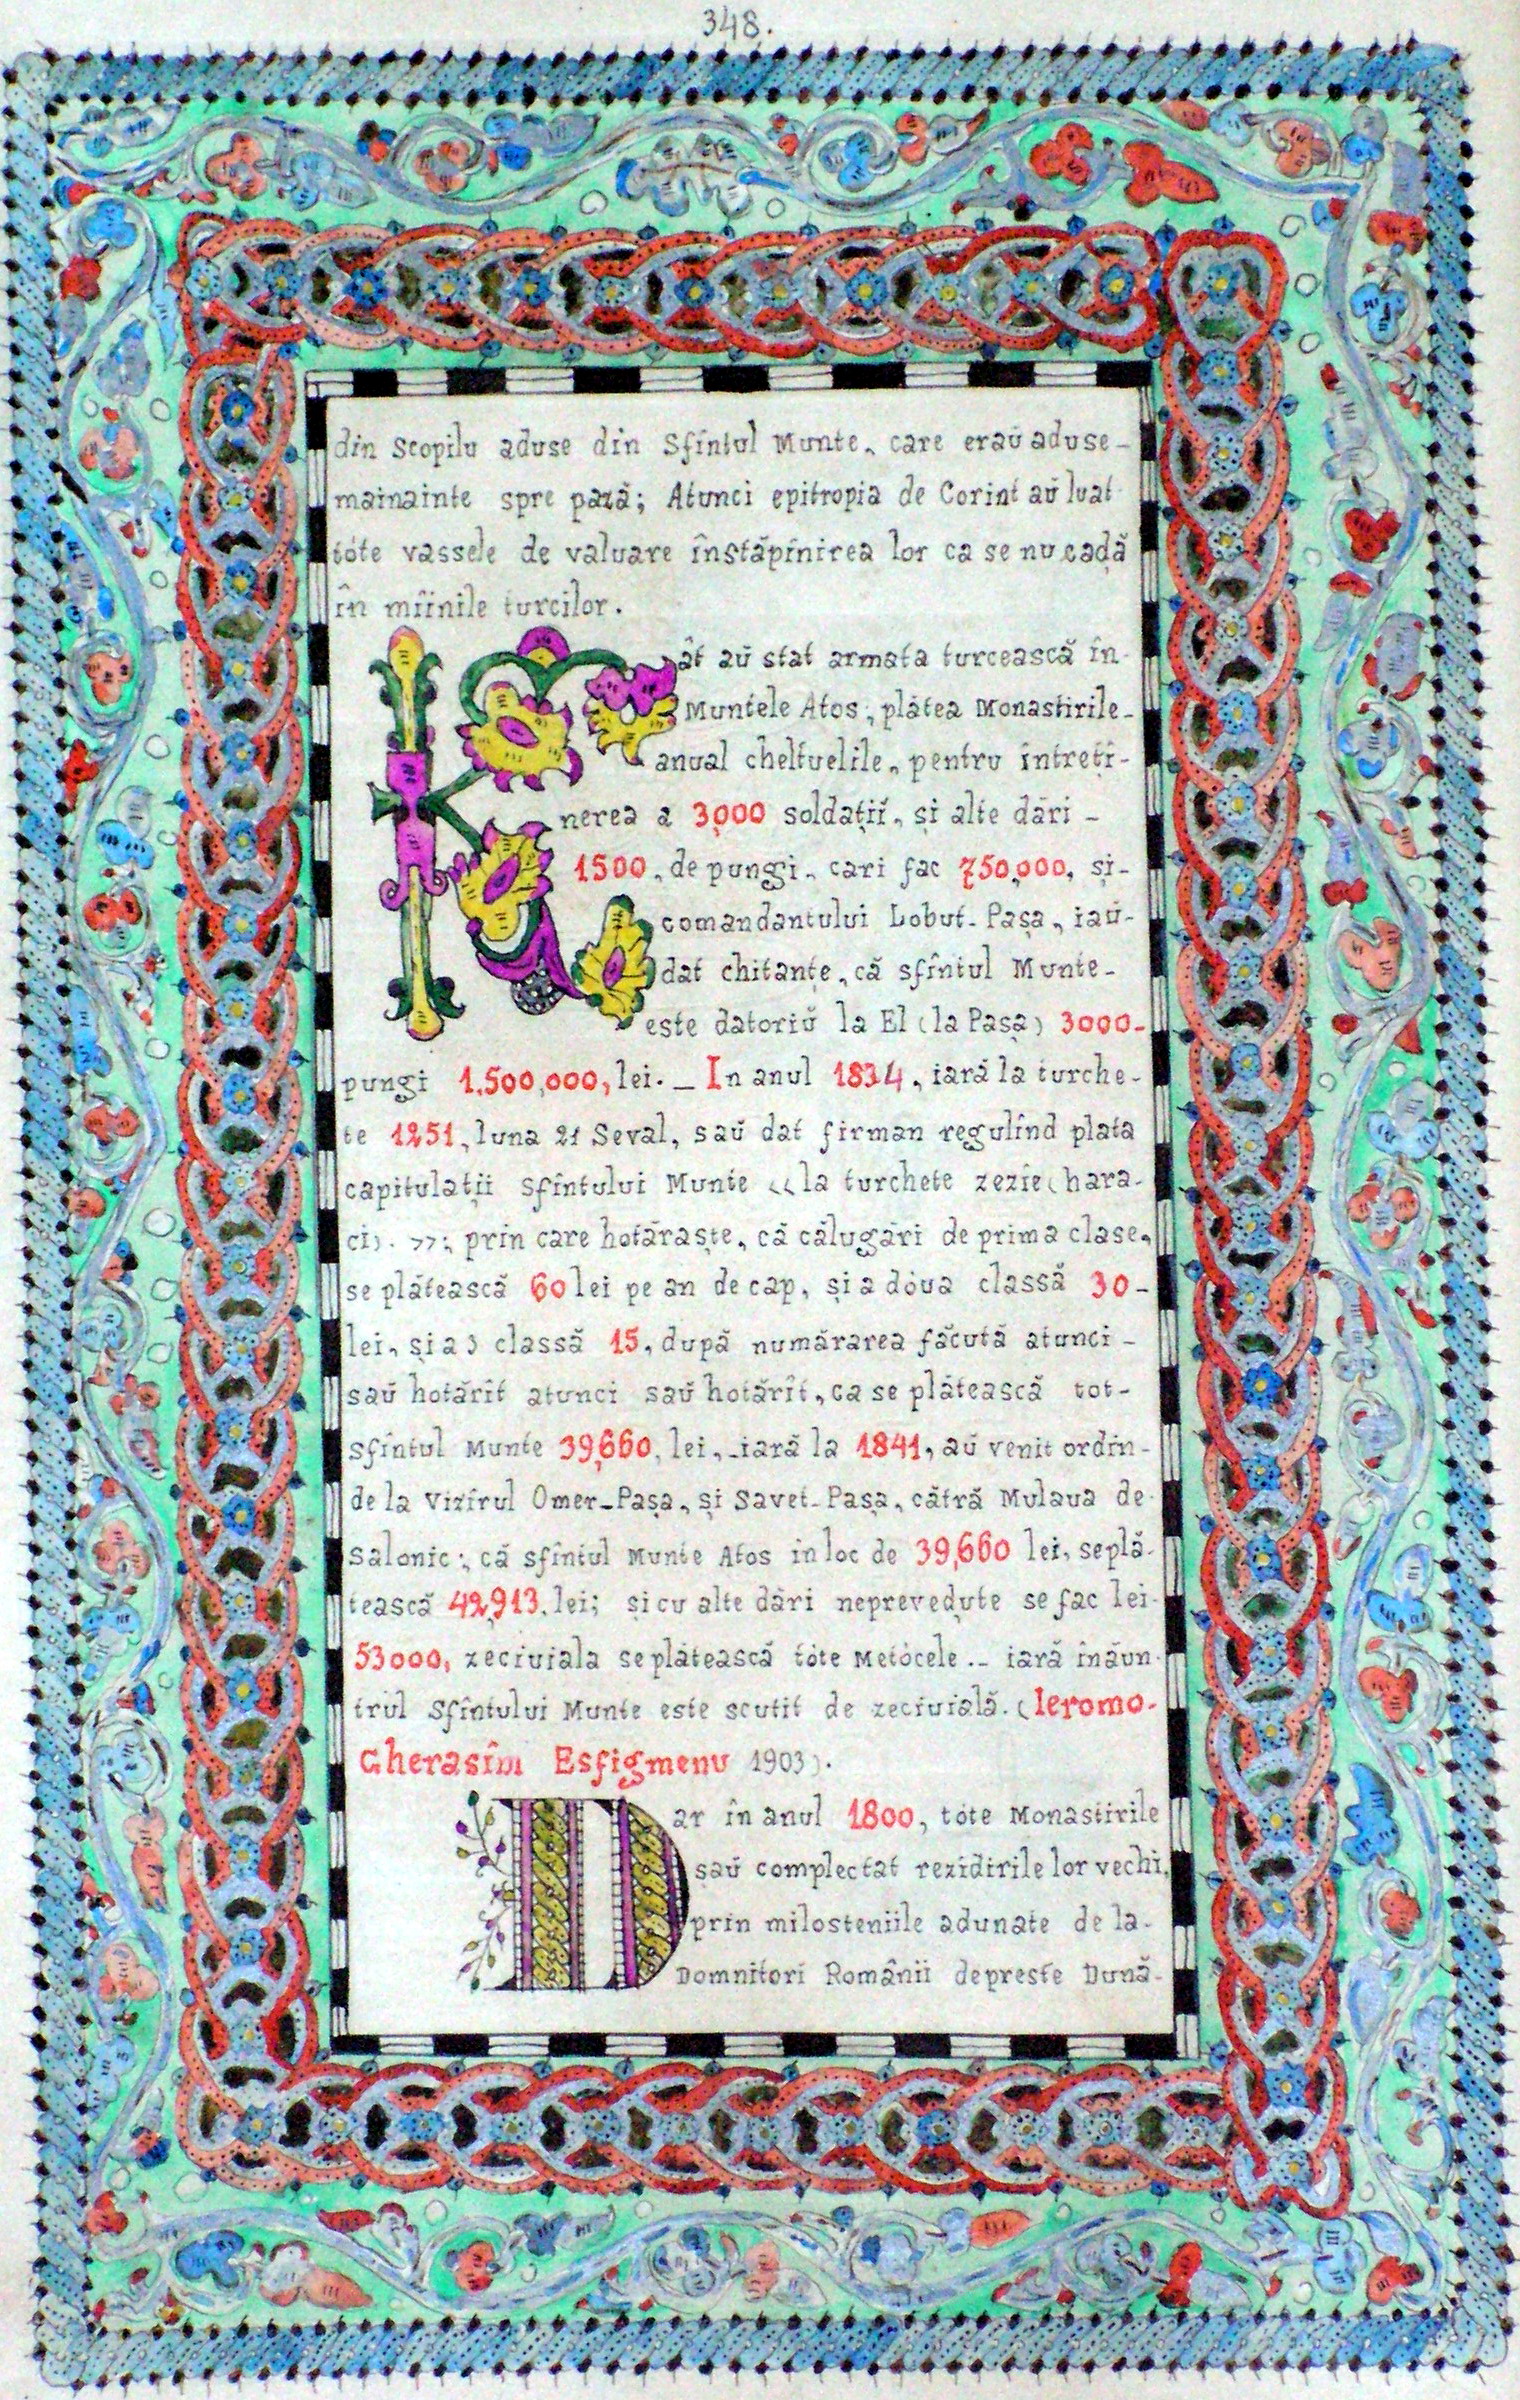 348.
din Scopilu aduse din Sfîntul Munte, care eraŭ aduse-
mainainte spre pază; Atunci epitropia de Corint aŭ luat
tóte vassele de valuare înstăpînirea lor ca se nu cadă
în mîinile turcilor.
Kât aŭ stat armata turcească în-
Muntele Atos; plătea Monastirile-
anual cheltuelile, pentru întreți-
nerea a 3000 soldațiĭ, și alte dări -
1500, de pungi, cari fac 750,000, și-
comandantului Lobut-Pașa, iaŭ-
dat chitanțe, că sfîntul Munte-
este datoriŭ la El (la Pașa) 3000-
pungi 1.500,000, lei. _ In anul 1834, iară la turche-
te 1251, luna 21 Seval, saŭ dat firman regulînd plata
capitulații Sfîntului Munte «la turchete zezie (hara-
ci). »; prin care hotăraște, că călugări de prima clase,
se plătească 60 lei pe an de cap, și a dóua classă 30-
lei, și a 3 classă 15, după numărarea făcută atunci-
saŭ hotărît atunci saŭ hotărît, ca se plătească tot-
sfîntul Munte 39,660, lei, _iară la 1841, aŭ venit ordin-
de la Vizirul Omer-Pașa, și Savet-Pașa, cătră Mulaua de
Salonic; că sfîntul Munte Atos in loc de 39,660 lei, seplă-
tească 42,913, lei; și cu alte dări neprevedute se fac lei-
53000, zeciuiala se plătească tóte Metócele.- iară înăun-
trul Sfîntului Munte este scutit de zeciuială. (Ieromo-
Gherasim Esfigmenu 1903).
Dar în anul 1800, tóte Monastirile
saŭ complectat rezidirile lor vechi,
prin milosteniile adunate de la-
Domnitori Românii depreste Dună-